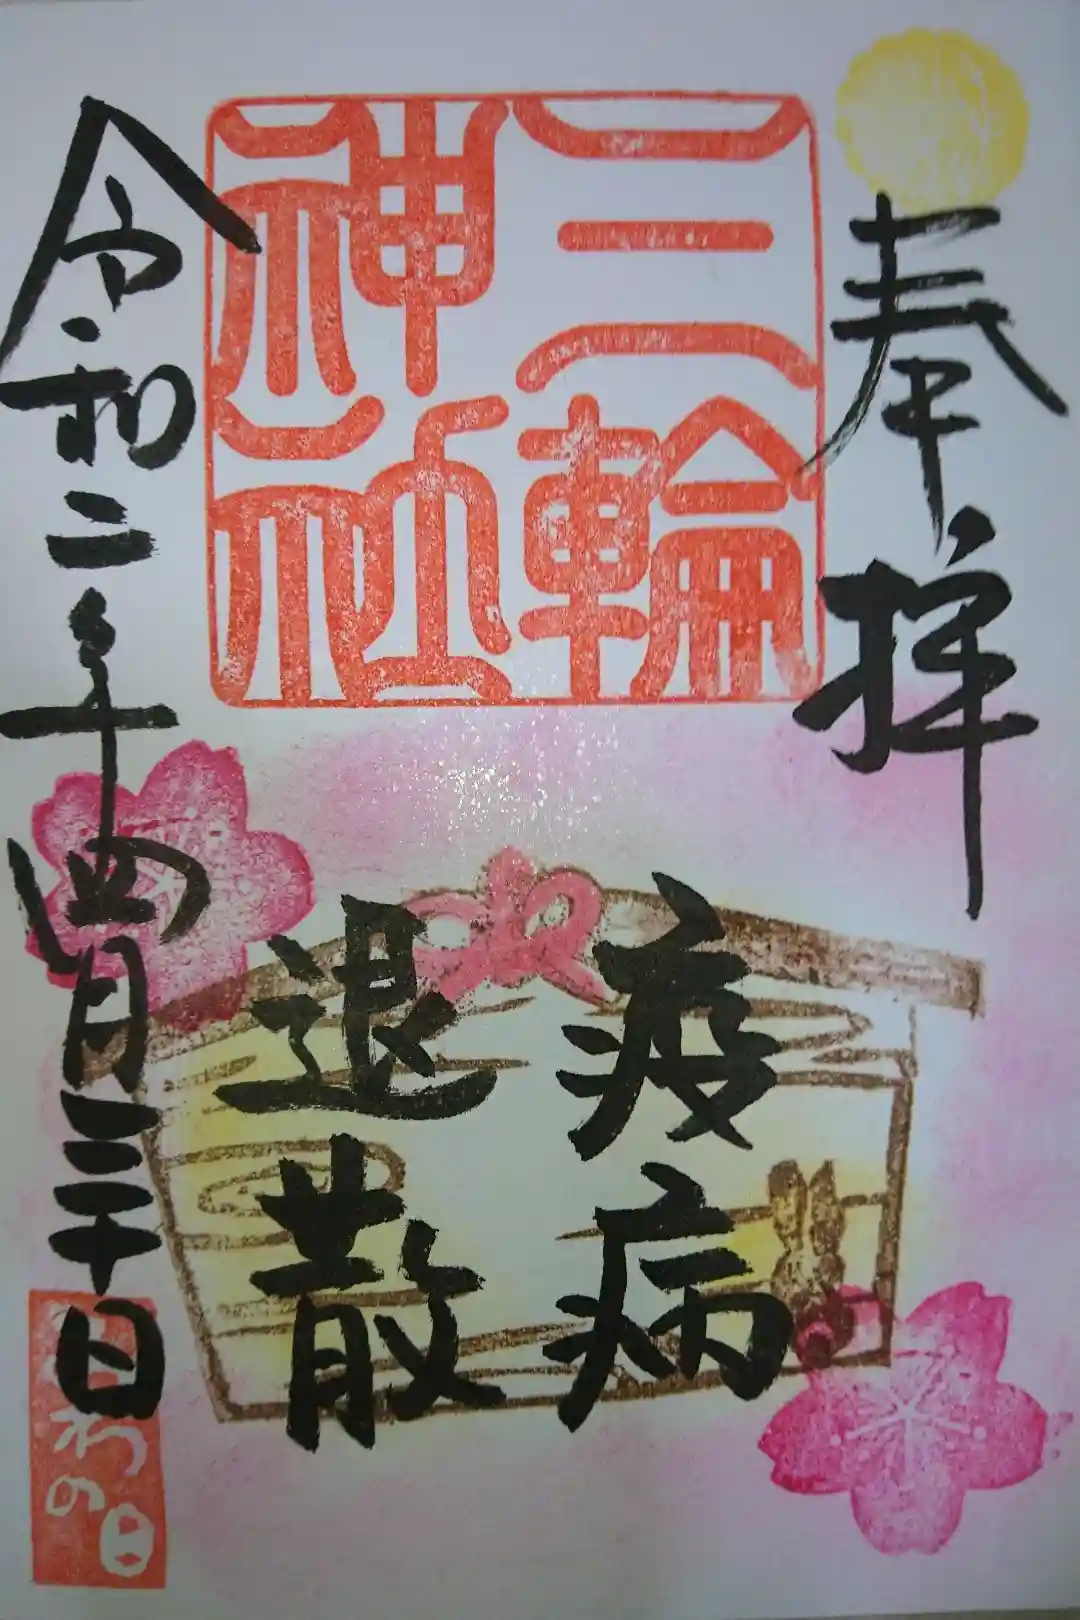 奉拝
三輪
神社
疫病
退散
令和二年四月三十日
の日